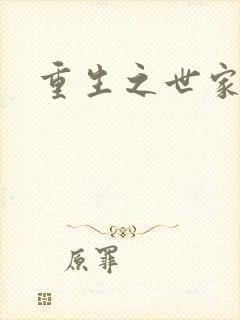 重生之世家
原罪